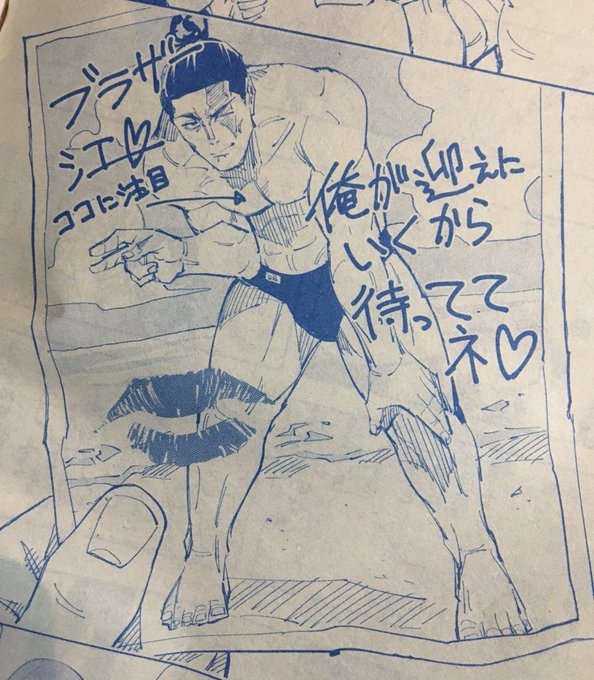 ブラザー
シエ♡
ココに注目
俺が迎えに
いくから
待ってて
ネ♡